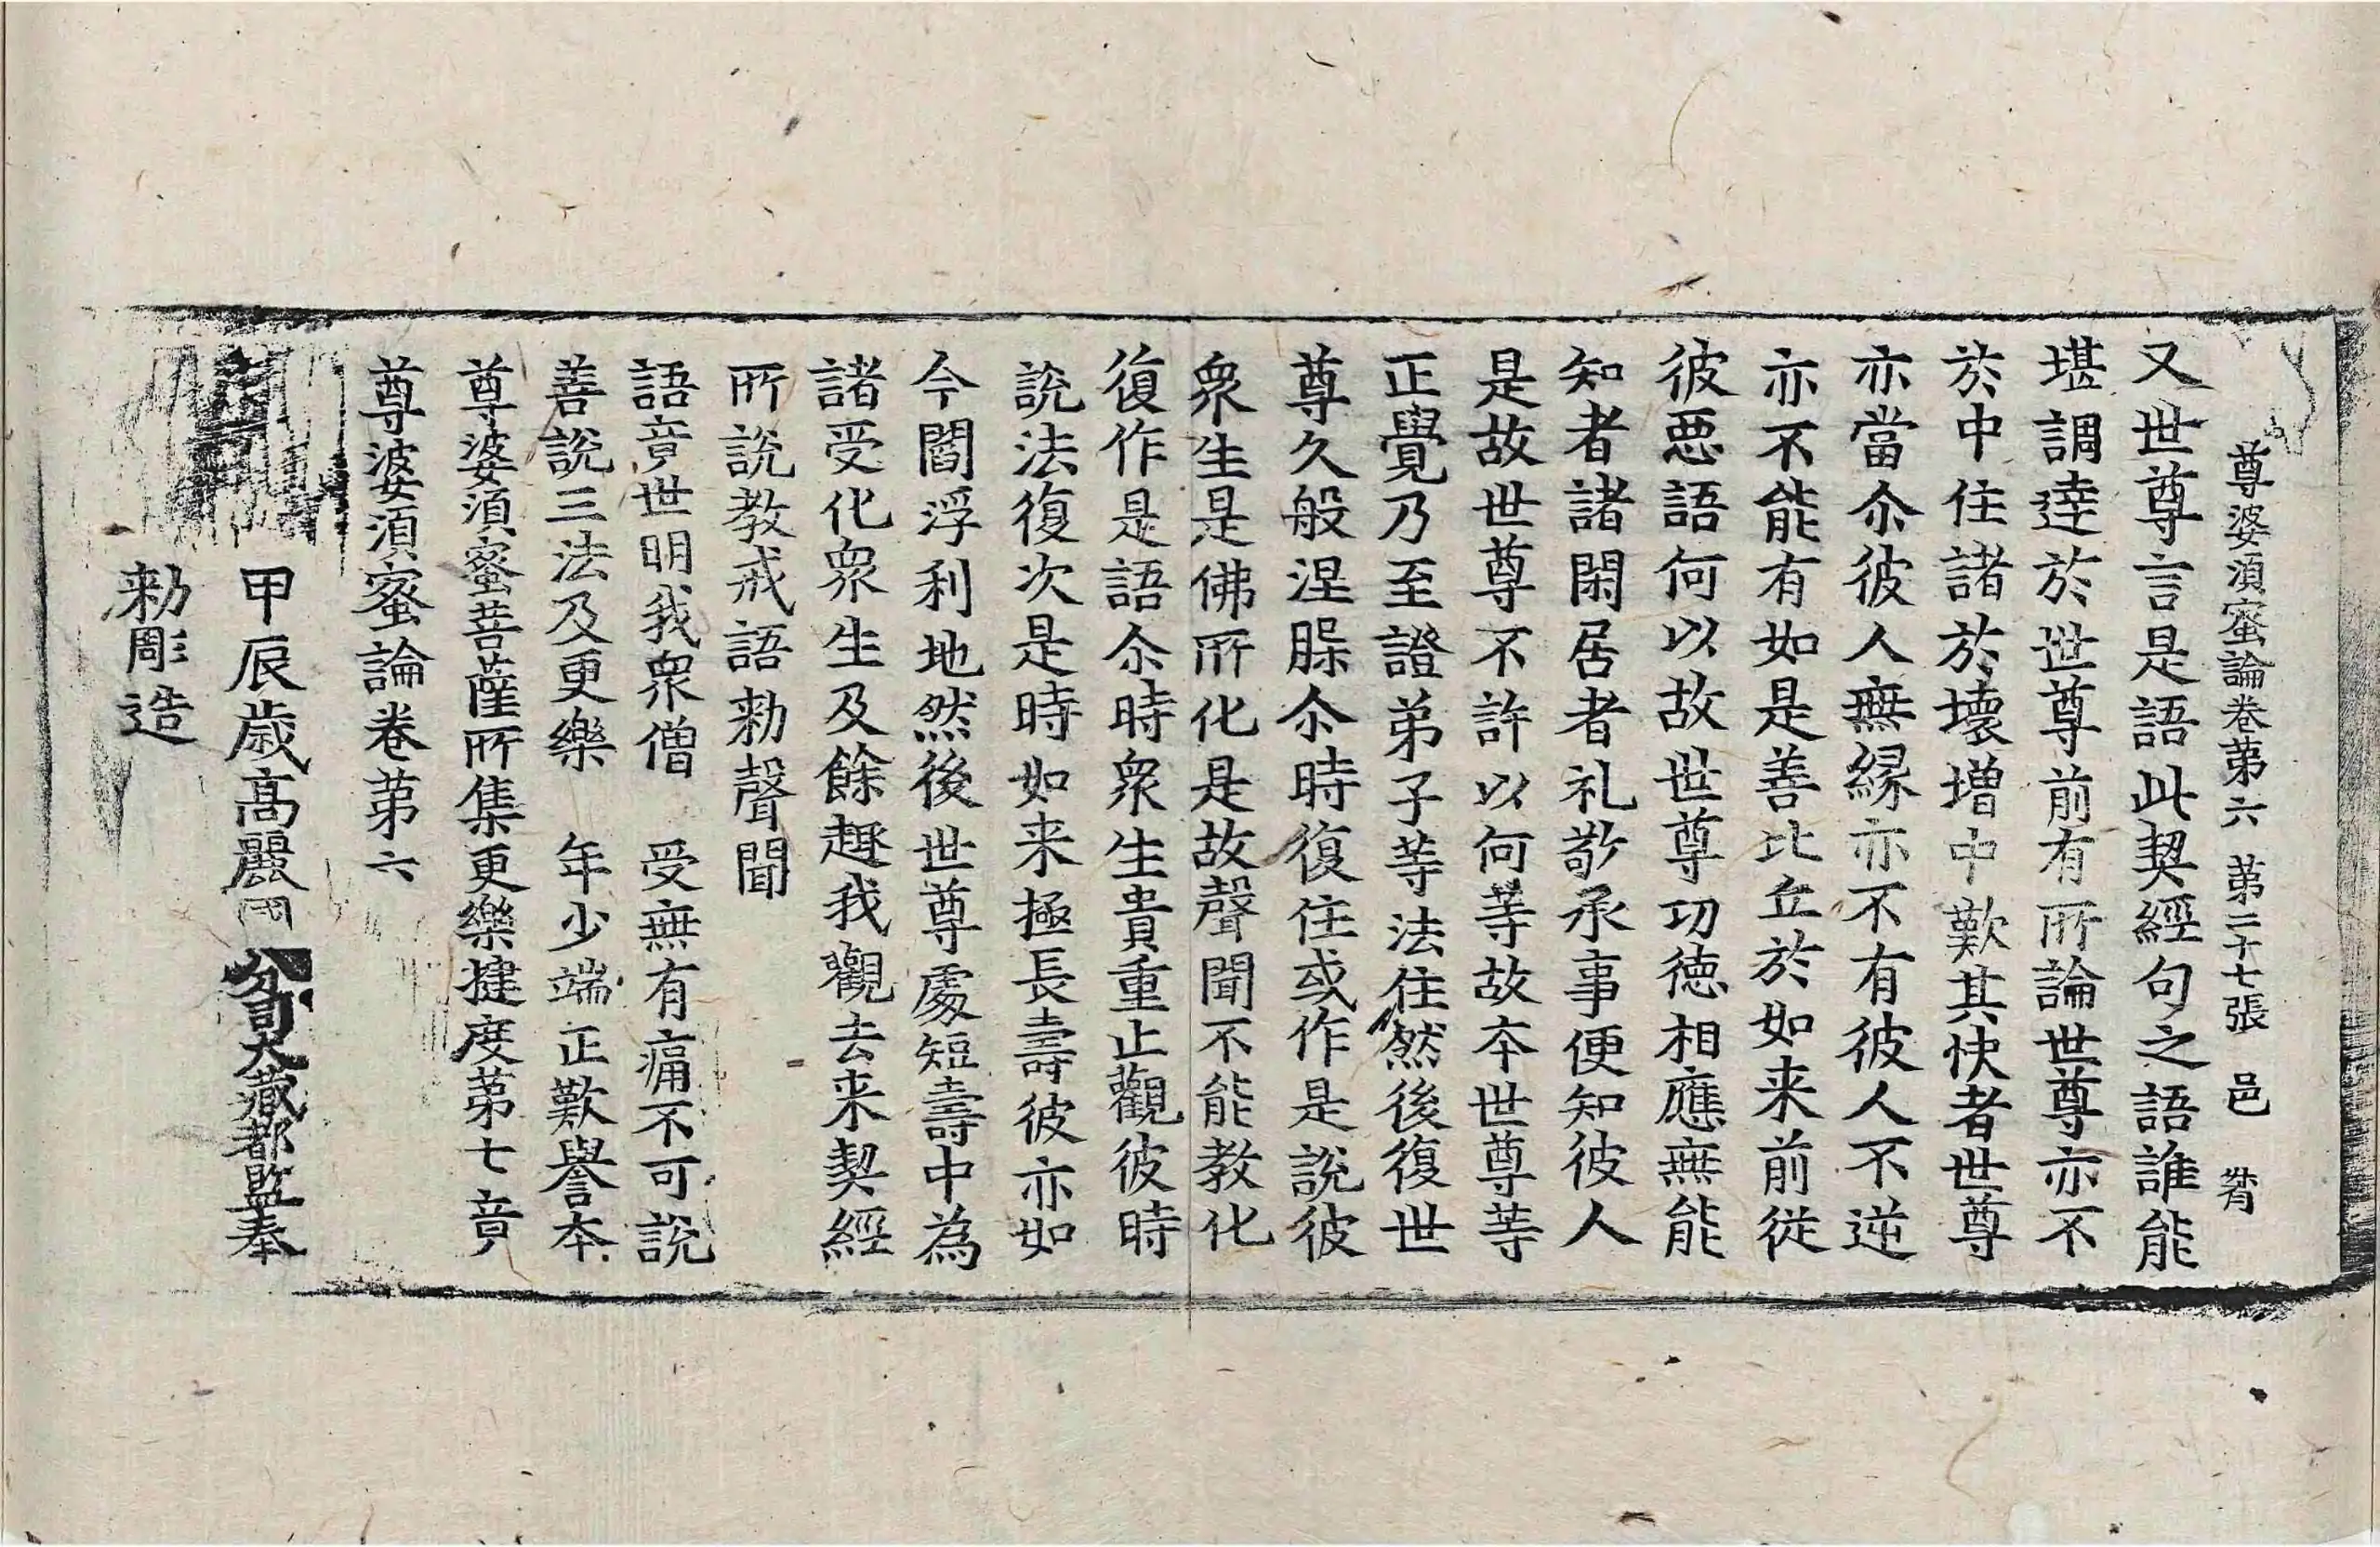 尊婆湏蜜論卷苐六 苐二十七張 邑
又世尊言是語此契經句之語誰能
堪調達於世尊前有所論世尊亦不
於中住諸於壞增中歎其快者世尊
亦當尒彼人無縁亦不有彼人不逆
亦不能有如是善比丘於如来前從
彼惡語何以故世尊功德相應無能
知者諸閑居者礼敬承事便知彼人
是故世尊不許以何等故本世尊等
正覺乃至證弟子等法住然後復世
尊久般涅槃尒時復住或作是說彼
衆生是佛所化是故聲聞不能教化
復作是語尒時衆生貴重止觀彼時
說法復次是時如来極長壽彼亦如
今閻浮利地然後世尊處短壽中為
諸受化衆生及餘趣我觀去来契經
所說教戒語勑聲聞
語竟世明我衆僧 受無有痛不可說
善說三法及更樂 年少端正歎譽本
尊婆湏蜜菩薩所集更樂揵度苐七竟
尊婆湏蜜論卷苐六
甲辰歲高麗國分司大藏都監奉
勑彫造